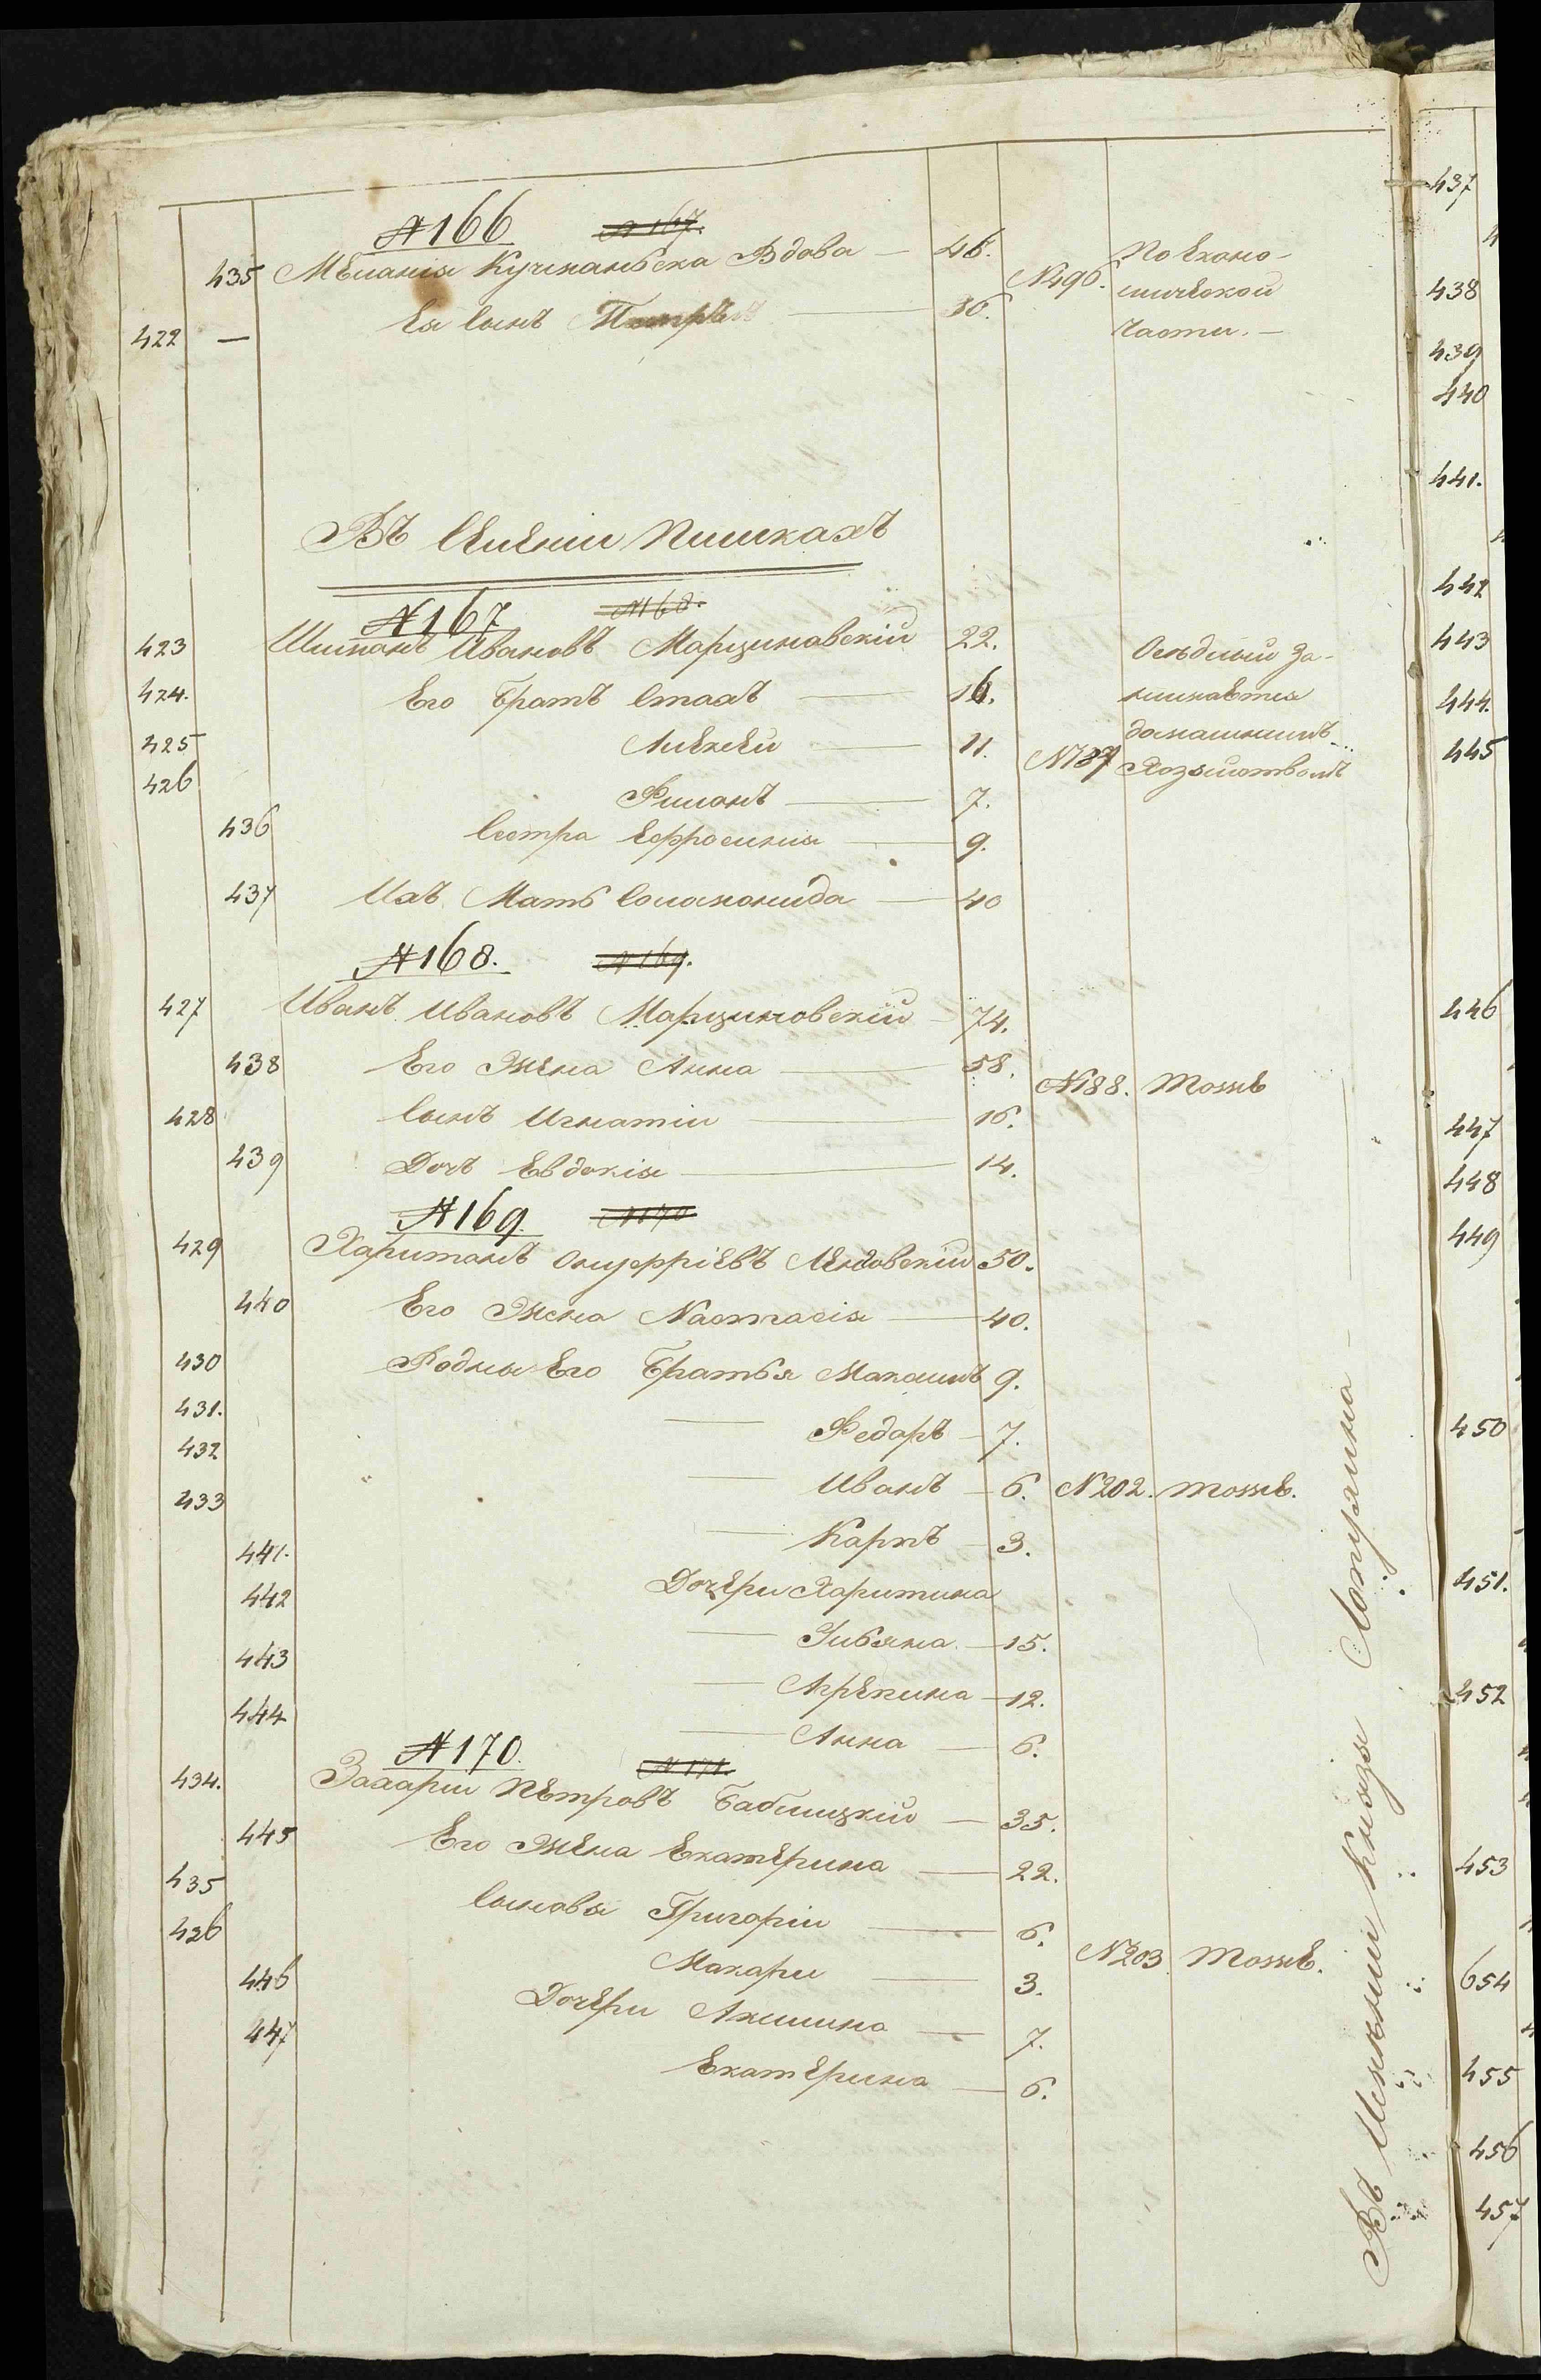 №166 № 167.
435 Меланія Кучинаньска Вдова — 46. По Економо-
№196. мической
422 — Ея Сынъ Петръ — 36. Части. —
Въ Селеніи Пишкахъ
№167 №168.
423 Шимонъ Ивановъ Марциновскій 22. Осѣдлый За-
424. Его Братъ Стахъ — 16. нимается
425 Алексей — 11. домашнимъ
№187 Хозяйствомъ
426 Филонъ — 7.
436 Сестра Ефросиния — 9.
437 Ихъ Мать Соломонида — 40
№168. № 169.
427 Иванъ Ивановъ Марциновскій — 74.
438 Его Жена Анна — 58.
№188. Тожъ
428 Сынъ Игнатіи — 16.
439 Дочъ Евдокія — 14.
№169. №170
429 Харитонъ Онуфріевъ Лендовскій 50.
440 Его Жена Настасія — 40.
430 Родны Его Братья Максимъ 9.
431. — Федоръ — 7.
432 — Иванъ — 6. №202. тоже.
433 — Карпъ — 3.
441. Дочери Харитина
442 — Ульяна — 15.
443 — Агрепина — 12.
444 — Анна — 6.
№170. № 171.
434. Захарии Петровъ Бабицкій — 35.
445 Его Жена Екатерина — 22.
435 Сыновья Григоріи — 6.
№203 Тоже.
426 Макари — 3.
446 Дочери Акилина — 7.
447 Екатерина — 6.
Въ Имении Князя Лопухина —
437
438
439
440
441.
442
443
444.
445
446
447
448
449
450
451.
452
453
654
455
456
457